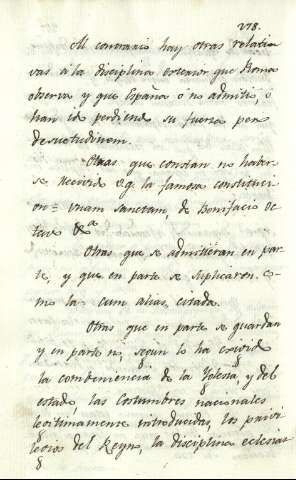 278.
Al contrario hay otras relati
vas á la disciplina exterior que Roma
observa y que España ó no admitió, ó
han ido perdiend su fuerza per
desuetudinem.
Otras que constan no haber
se recivido v.g. la famosa constituci
on = unam sanctam, de Bonifacio oc
tavo &a
Otras que se admitieran en par
te, y que en parte se suplicaron co-
mo la cum alias citada.
Otras que en parte se guardan
y en parte no, segun lo ha exsivid
la combeniencia de la Yglesia, y del
estado, las Costumbres nacionales
legitimamente introducidas, los privi
legios del Reyno, la disciplina eclesias